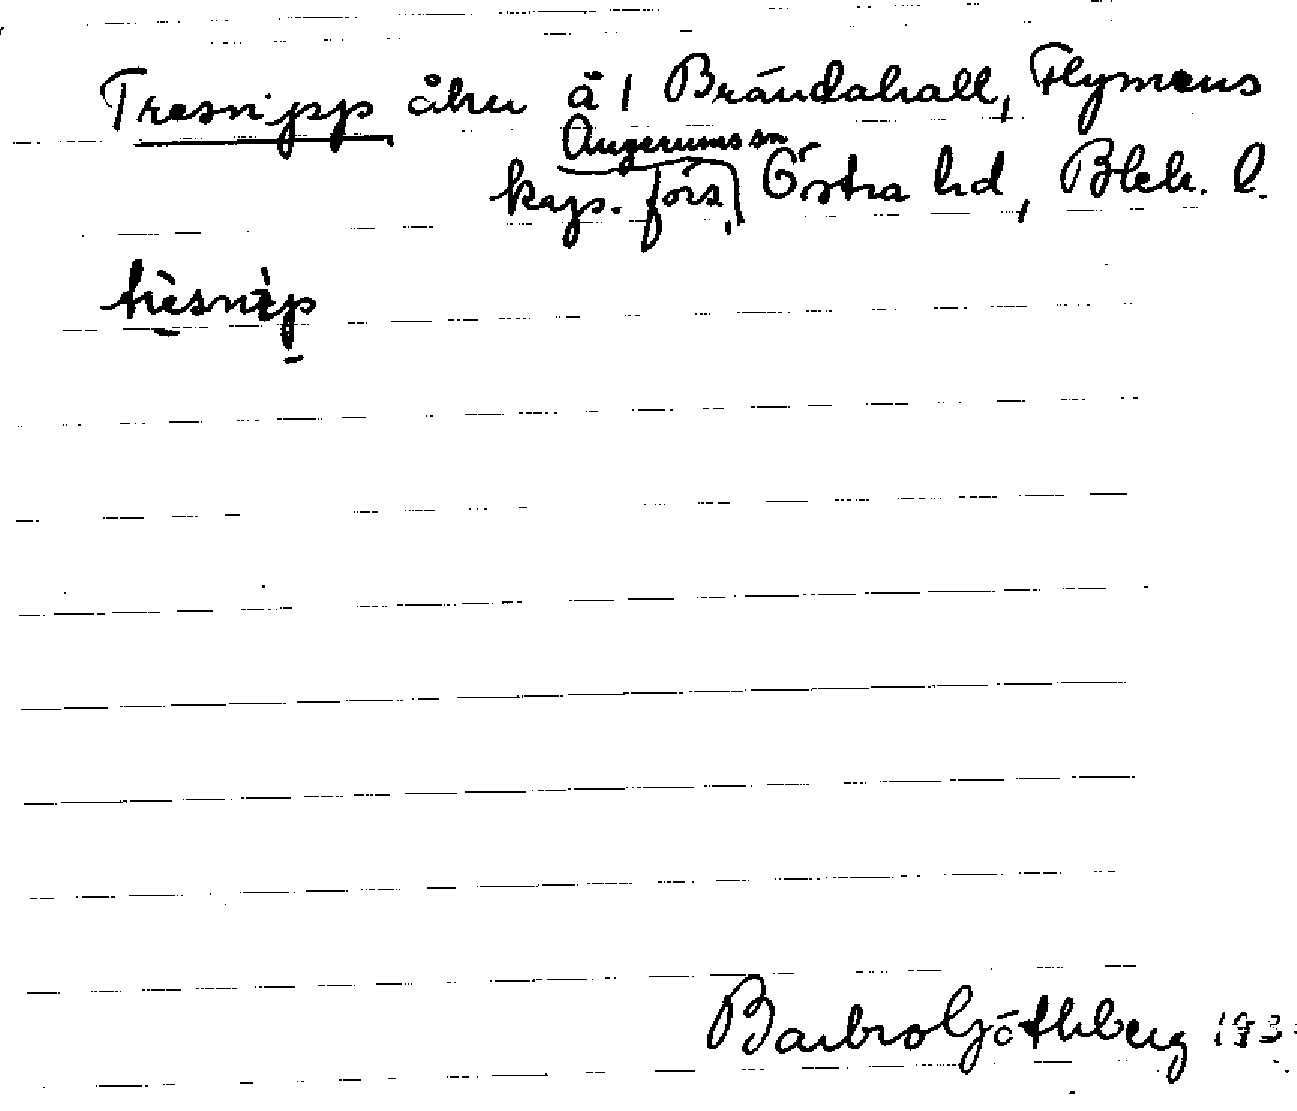 Tresnipp åker ä 1 Brändahall, Flymens
Augerums sn
kaps. förs., Östra hd, Blek. l.
trèsnìp
Barbro Göthberg 193